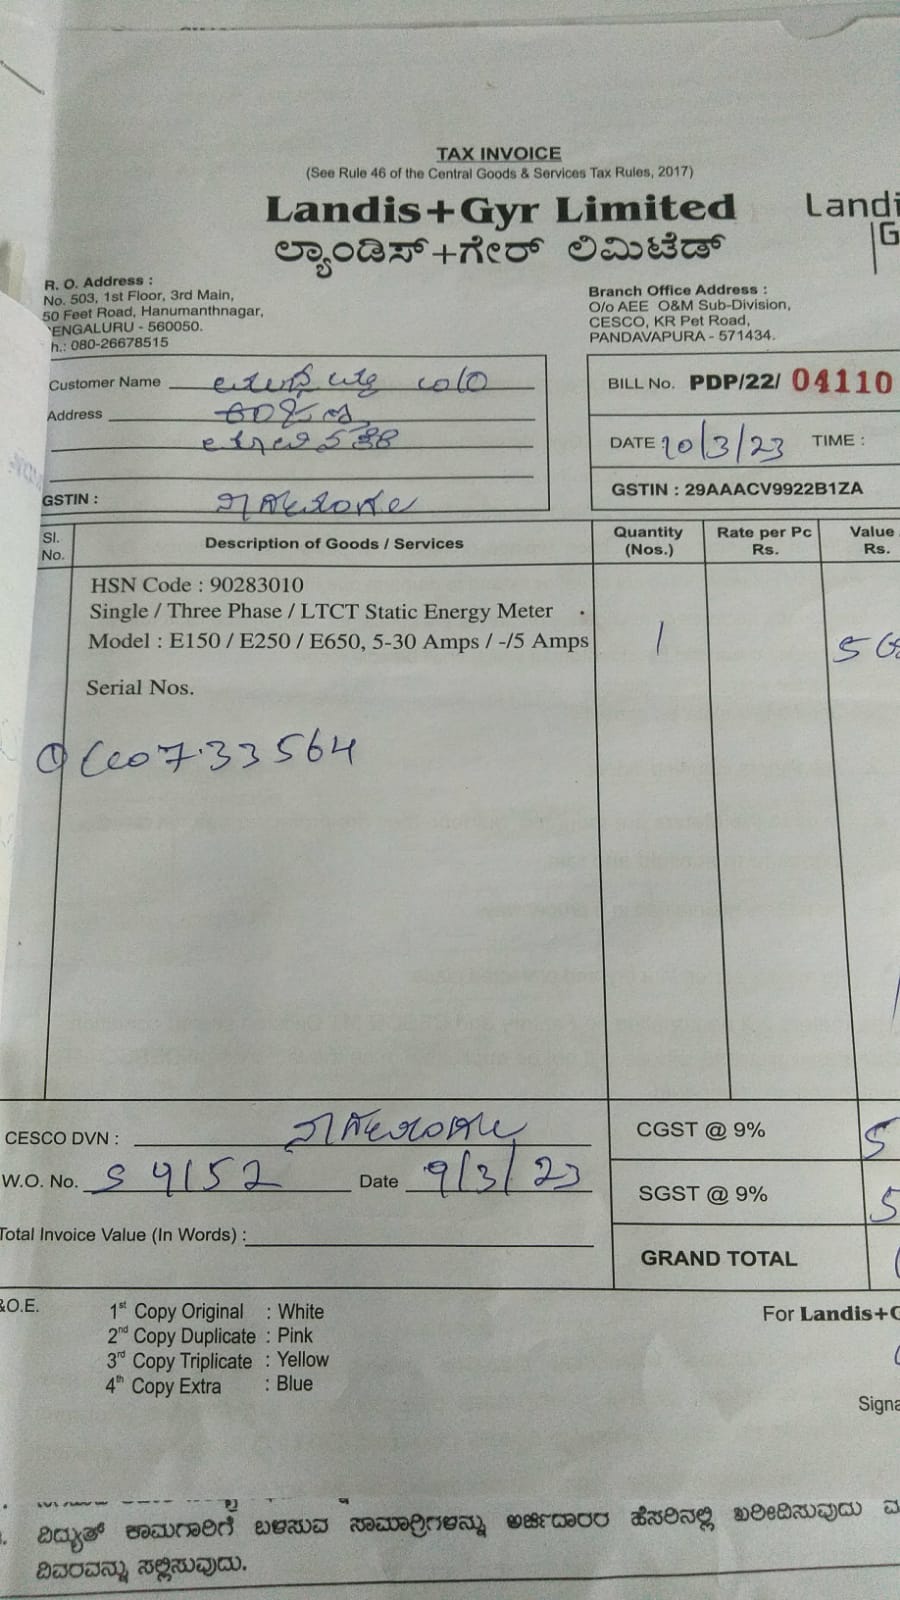 TAX INVOICE
(See Rule 46 of the Central Goods & Services Tax Rules, 2017)
Landis+Gyr Limited
Landi
G
ಲ್ಯಾಂಡಿಸ್+ಗೇರ್ ಲಿಮಿಟೆಡ್
R. O. Address :
No. 503, 1st Floor, 3rd Main,
50 Feet Road, Hanumanthnagar,
ENGALURU - 560050.
h.: 080-26678515
Branch Office Address :
O/o AEE O&M Sub-Division,
CESCO, KR Pet Road,
PANDAVAPURA - 571434.
Customer Name
Address
GSTIN :
BILL No. PDP/22/ 04110
DATE : 20/3/23 TIME :
GSTIN : 29AAACV9922B1ZA
Sl. No. Description of Goods / Services Quantity (Nos.) Rate per Pc Rs. Value Rs.
HSN Code : 90283010
Single / Three Phase / LTCT Static Energy Meter
Model : E150 / E250 / E650, 5-30 Amps / -/5 Amps 1
Serial Nos.
733564
CESCO DVN :
CGST @ 9% 5
W.O. No. S 9152 Date 9/3/23
SGST @ 9% 5
Total Invoice Value (In Words) :
GRAND TOTAL
&O.E.
1st Copy Original : White
2nd Copy Duplicate : Pink
3rd Copy Triplicate : Yellow
4th Copy Extra : Blue
For Landis+G
Signa
ವಿದ್ಯುತ್ ಕಾಮಗಾರಿಗೆ ಬಳಸುವ ಸಾಮಾಗ್ರಿಗಳನ್ನು ಅರ್ಜಿದಾರರ ಹೆಸರಿನಲ್ಲಿ ಖರೀದಿಸುವುದು ಮ
ವಿವರವನ್ನು ಸಲ್ಲಿಸುವುದು.